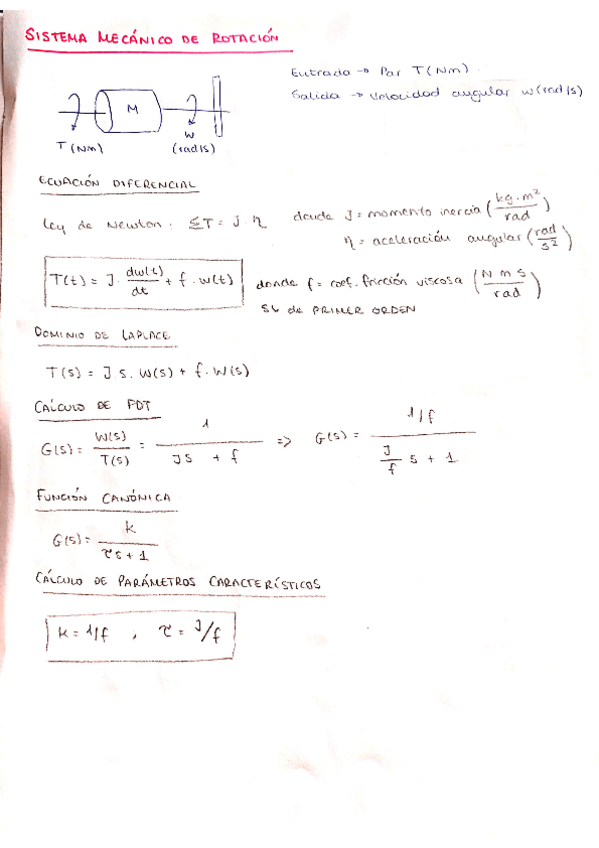 SISTEMA MECÁNICO DE ROTACIÓN
Entrada → Par T(Nm).
Salida → Velocidad angular w(rad/s)
M
T (Nm)
w
(rad/s)
ECUACIÓN DIFERENCIAL
Ley de Newton: ΣT = J · η donde J = momento inercia (kg·m²/rad)
η = aceleración angular (rad/s²)
T(t) = J · dw(t)/dt + f · w(t) donde f = coef. fricción viscosa (N m s/rad)
SL de PRIMER ORDEN
DOMINIO DE LAPLACE
T(s) = J s · W(s) + f · W(s)
CÁLCULO DE FDT
G(s) = W(s)/T(s) = 1/(Js + f) => G(s) = (1/f)/(J/f s + 1)
FUNCIÓN CANÓNICA
G(s) = k/(τs + 1)
CÁLCULO DE PARÁMETROS CARACTERÍSTICOS
k = 1/f , τ = J/f